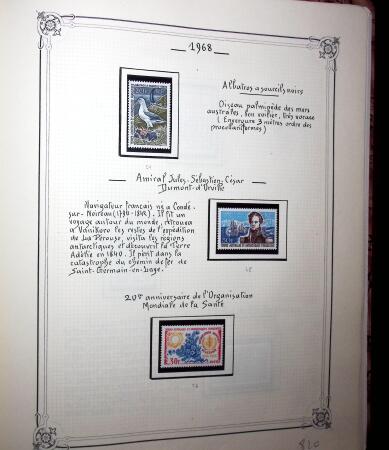 1968
Albatros a sourcils noirs
Oiseau palmipède des mers
australes, bon voilier, très vorace
(Envergure 3 mètres ordre des
procellariiformes)
Amiral Jules-Sébastien-César
Dumont-d'Urville
Navigateur français né a Condé-
sur-Noireau (1790-1842). Il fit un
voyage autour du monde, retrouva
a Vanikoro les restes de l'expédition
de La Pérouse, visita les régions
antarctiques et découvrit la Terre
Adélie en 1840. Il périt dans la
catastrophe du chemin de fer de
Saint-Germain-en-Laye.
20e anniversaire de l'Organisation
Mondiale de la Santé
30f